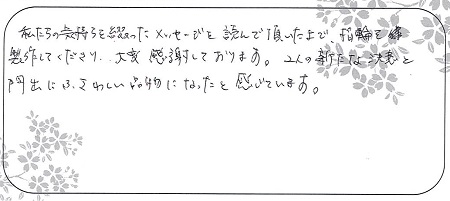 私たちの気持ちを綴ったメッセージを読んで頂いた上で、指輪を
製作してくださり、大変感謝しております。2人の新たな決意と
門出にふさわしい品物になったと感じています。